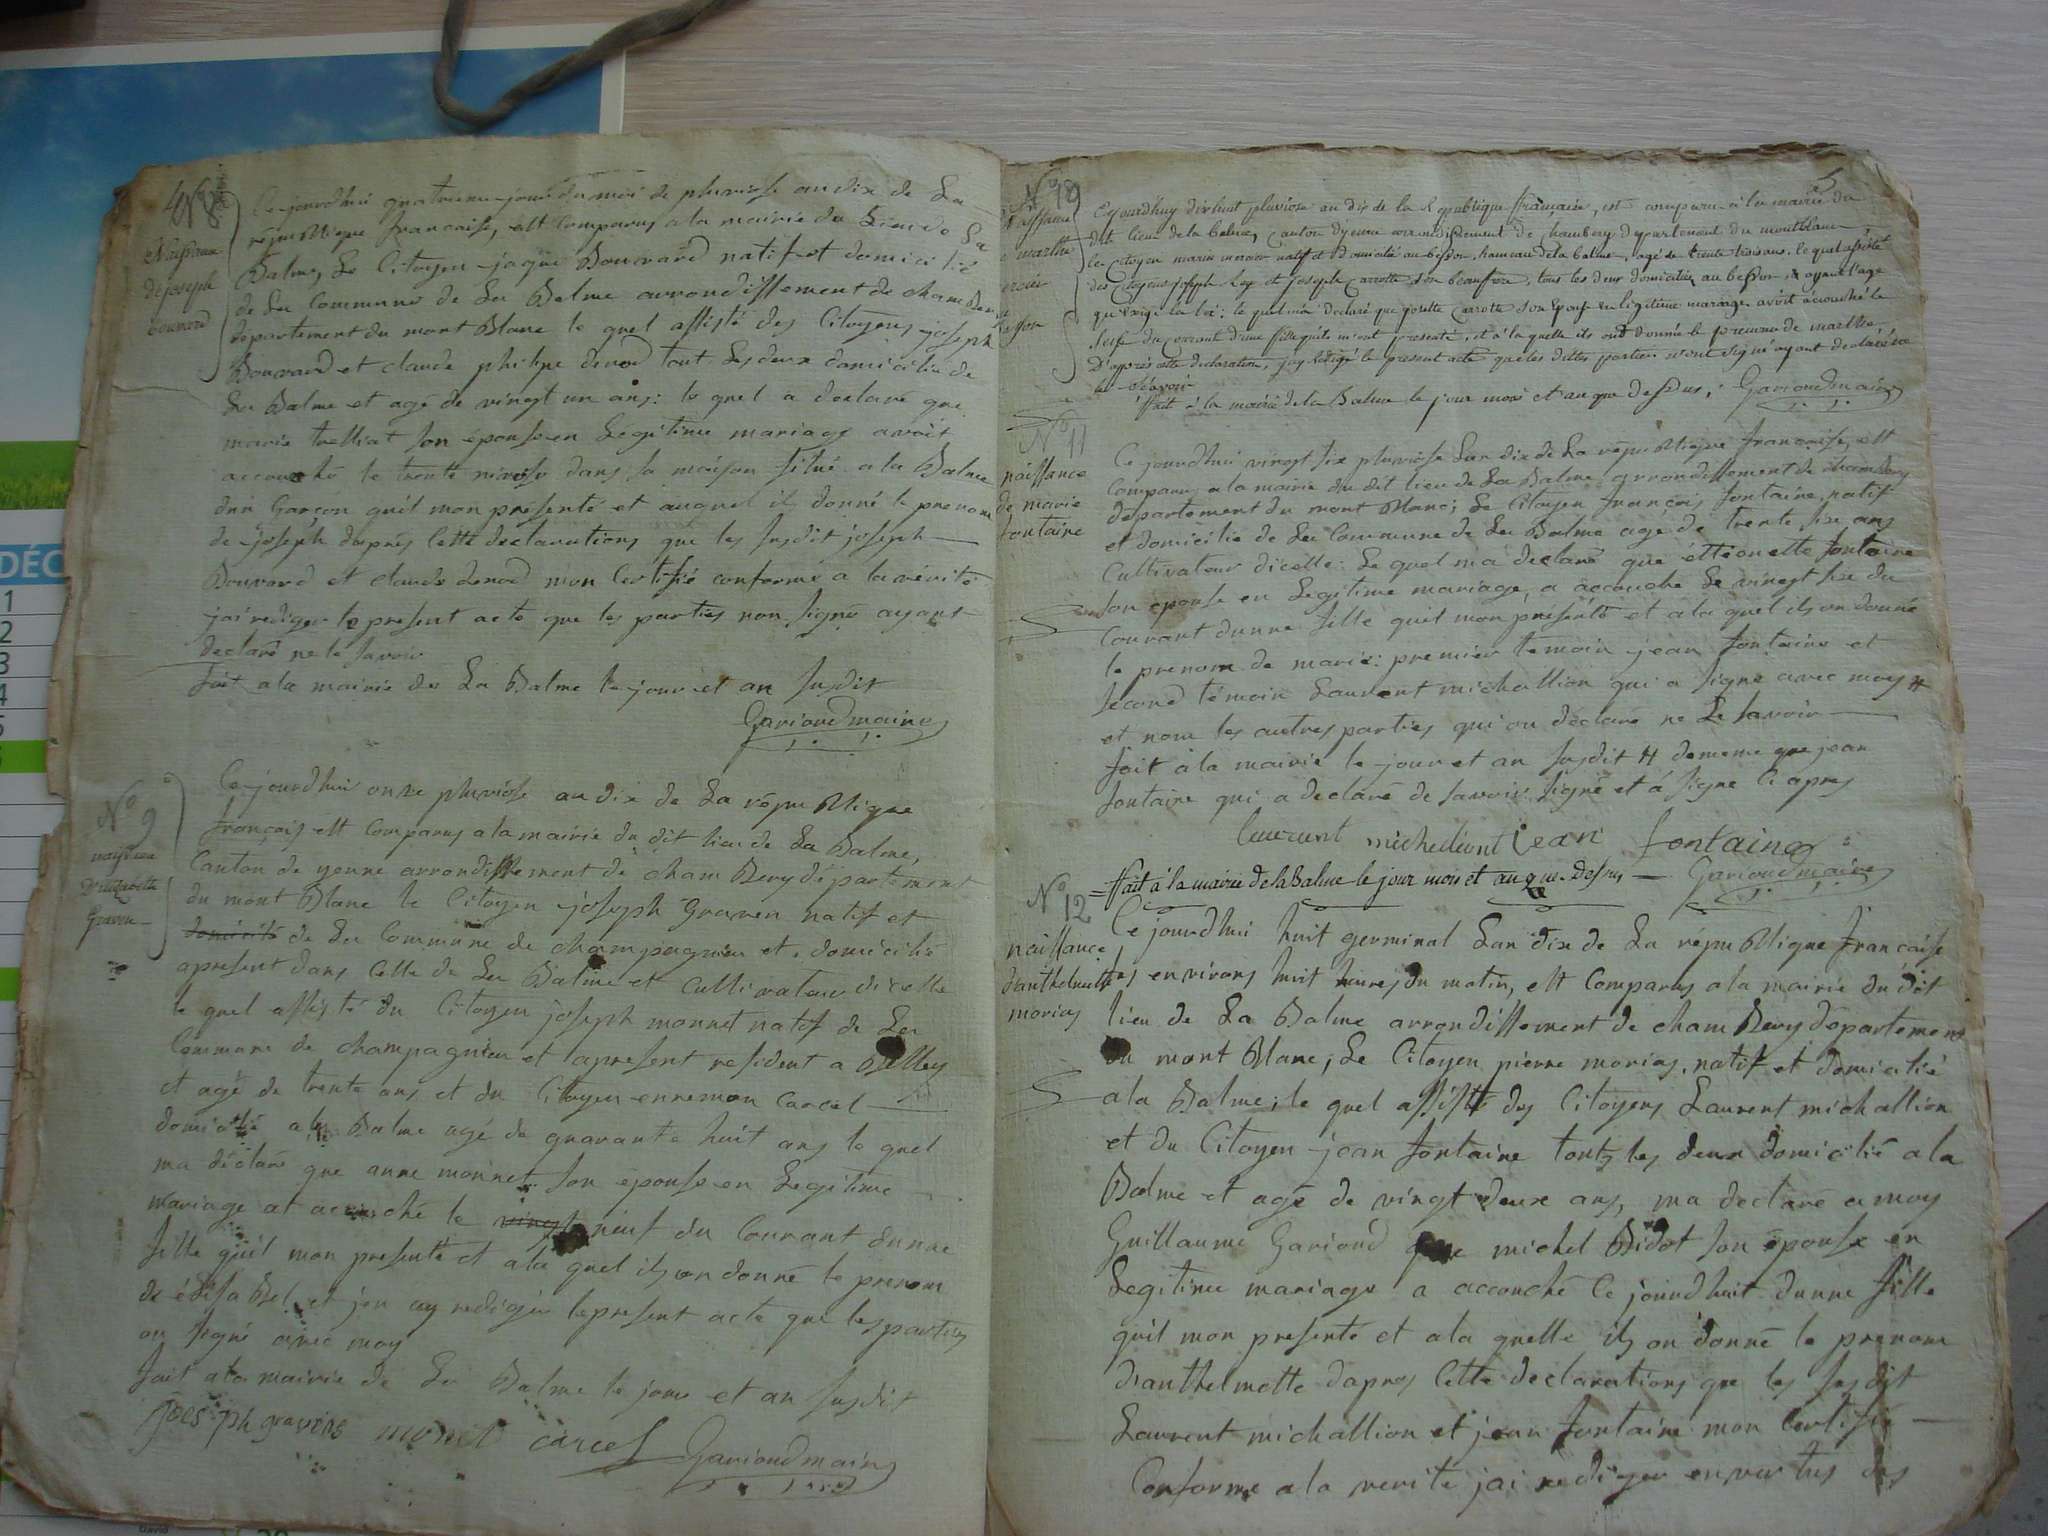 4
N° 8
Naissance
de joseph
bouvard
Ce jourdhui quatrieme jour du moi de pluviose an dix de La
republique francaise, est Comparus a la mairie du Lieu de La
Balme, Le Citoyen jaque Bouvard natif et domicilié
de La Commune de La Balme arrondissement de cham Bery
departement du mont Blanc le quel assisté des Citoyens joseph
Bouvard et claude philipe denod tout Les deux domicilié de
La Balme et agé de vingt un ans: le quel a declaré que
marie trelliat son épouse en Légitime mariage avoit
accouché le trente nivose dans sa maison situé a la Balme
dun Garçon quil mon présenté et auquel ils donné le prenom
de joseph daprés Cette declarations que les susdit joseph
Bouvard et claude denod mon Certifié conforme a la vérité
jai rediger le present acte que les parties non signé ayant
declaré ne le savoir
fait a la mairie de La Balme le jour et an susdit
Garioud maire
N° 9
naissance
d'elizabette
Graven
Ce jourdhui onze pluviose an dix de La répu Blique
françois est Comparus a la mairie du dit lieu de La Balme,
Canton de yenne arrondissement de cham Bery département
du mont Blanc le Citoyen joseph Graven natif et
domicilié de La Commune de champagnieu et domicilié
apresent dans Celle de La Balme et Cultivateur dicelle
le quel assisté du Citoyen joseph monnet natif de La
Commune de champagnieu et apresent resident a Belley
et agé de trente ans et du Citoyen ennemon Carcel
domicilié a la Balme agé de quarante huit ans le quel
ma déclaré que anne monnet son épouse en Legitime
mariage at accouché le vingt neuf du Courant dunne
fille quil mon presenté et a la quel ils on donné le prenom
de élisa Bet et jen ay redigér le present acte que les parties
on signé avec moy
fait a la mairie de La Balme le jour et an susdit
joes ph gravins monet carcel Garioud maire
5
N° 10
Naissance
de marthe
mercier
besson
Cejourdhuy dixhuit pluviose an dix de la République française, est comparu à la mairie du
dit lieu de la balme, canton dyenne arrondissement de chambery département du montblanc
le citoyen marin mercier natif et domicilié au besson, hameau de la balme, agé de trente trois ans, le quel assisté
des citoyens joseph Rey et joseph Carrotte son beaufrere, tous les deux domiciliés au besson, et ayant l'age
qu'exige la loi: le quel m'a declaré que josette Carrotte son épouse en légitime mariage avoit accouché le
seise du courant d'une fille qu'ils m'ont presenté, et à la quelle ils ont donnée le prenom de marthe
D'apprès cette declaration, j'ay redigé le present acte que les dittes parties n'ont signé ayant declaré ne
le sçavoir
ffait à la mairie de la Balme le jour mois et an que dessus, Gariod maire
N° 11
naissance
de marie
fontaine
Ce jourdhui vingt six pluviose Lan dix de La république françoise, est
Comparus a la mairie du dit lieu de La Balme arrondissement de chambery
département du mont Blanc; Le Citoyen françois fontaine, natif
et domicilié de La Commune de La Balme agé de trente six ans
Cultivateur dicelle: Le quel ma declaré que éttionette fontaine
son épouse en Legitime mariage, a accouché Le vingt six du
Courant dunne fille quil mon présénté et a la quel ils on donné
le prenom de marie: premier temoin jean fontaine et
second témoin Laurent michallion qui a signé avec moy #
et nom les autres parties qui on déclaré ne Le savoir
fait à la mairie le jour et an susdit # de meme que jean
fontaine qui a declaré de savoir signé et à signé Ci apres
laurent michellont jean fontaine
ffait à la mairie de la Balme le jour mois et an que dessus Gariod maire
N° 12
naissance
d'anthelmette
morias
Ce jourdhui huit germinal Lan dix de La répu Blique française
es environs huit heures du matin, est Comparus a la mairie du dit
lieu de La Balme arrondissement de cham Bery département
du mont Blanc, Le Citoyen pierre morias, natif et domicilié
a la Balme; le quel assisté des Citoyens Laurent michallion
et du Citoyen jean fontaine touts les deux domicilié a la
Balme et agé de vingt deux ans, ma declaré a moy
Guillaume Gariod que michel Bidot son épouse en
Legitime mariage a accouché Ce jourdhuit dunne fille
quil mon presenté et a la quelle ils on donné le prenom
d'anthelmette dapres Cette declarations que les susdit
Laurent michallion et jean fontaine mon Certifié
Conforme a la verité jai rediger en vertus des
DÉC
1
2
3
4
5